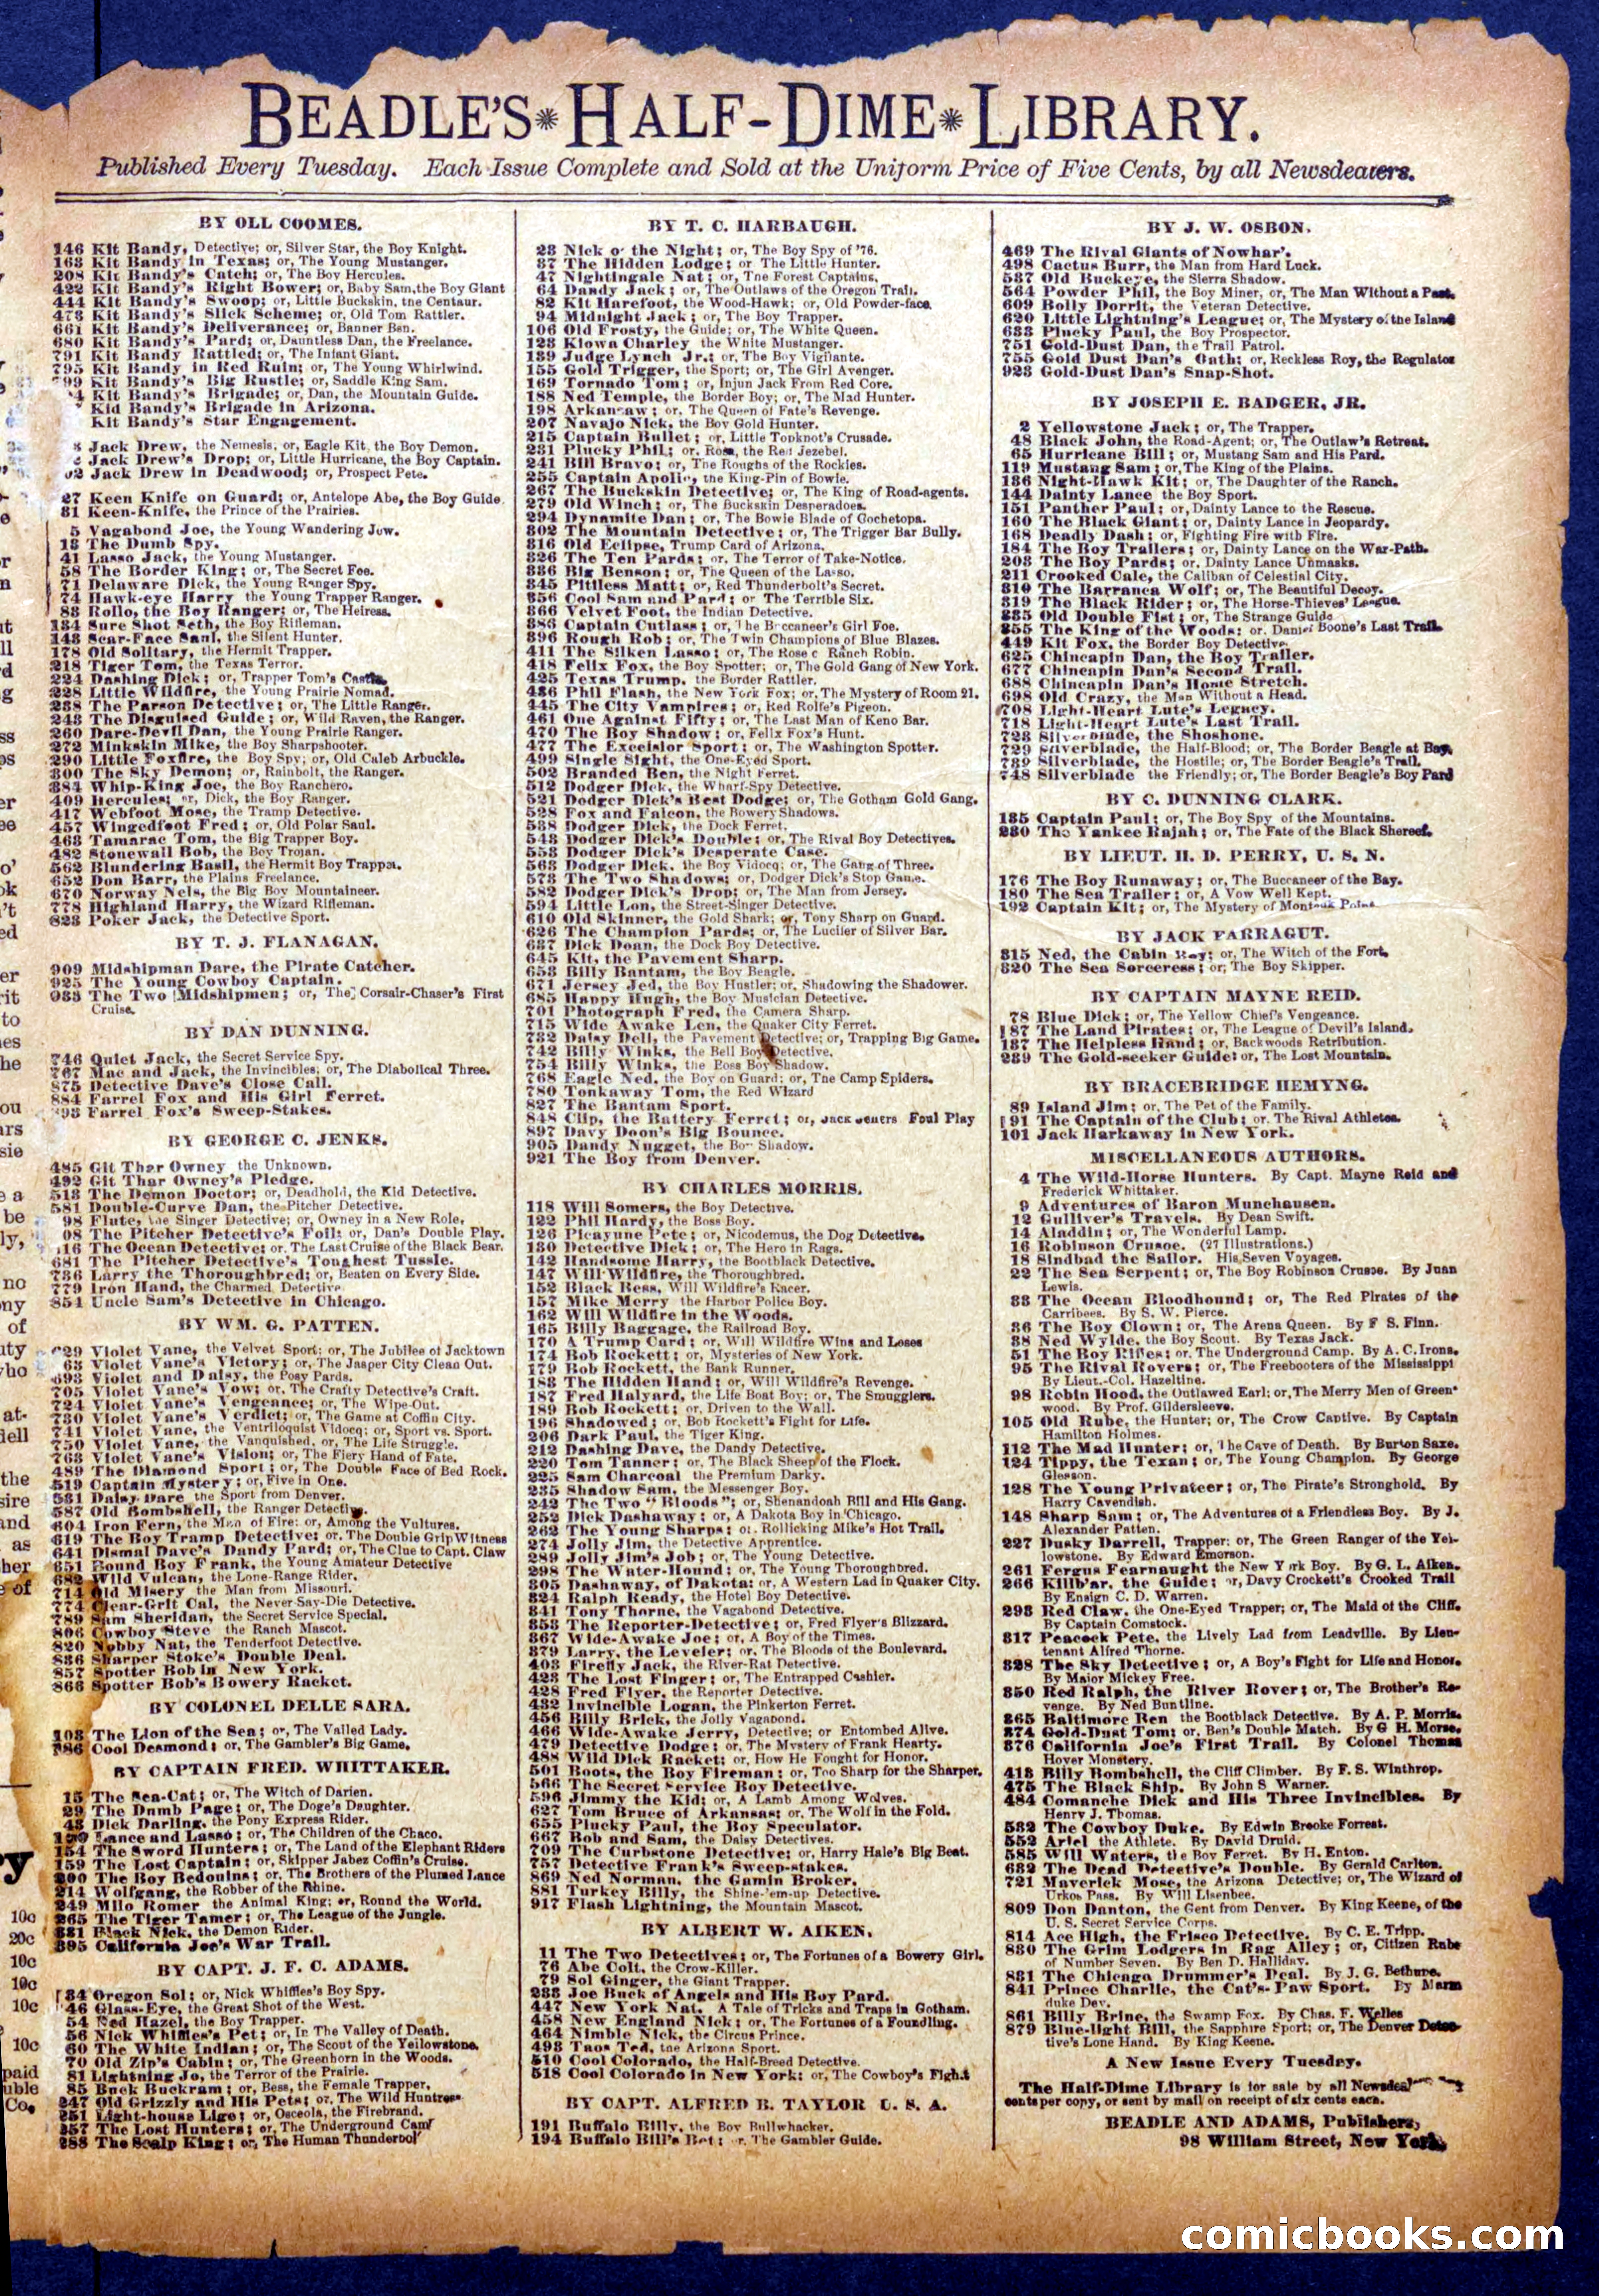 BEADLE'S HALF-DIME LIBRARY.
Published Every Tuesday. Each Issue Complete and Sold at the Uniform Price of Five Cents, by all Newsdealers.
BY OLL COOMES.
146 Kit Bandy, Detective; or, Silver Star, the Boy Knight.
163 Kit Bandy in Texas; or, The Young Mustanger.
208 Kit Bandy's Catch; or, The Boy Hercules.
422 Kit Bandy's Right Bower; or, Baby Sam, the Boy Giant
444 Kit Bandy's Swoop; or, Little Buckskin, the Centaur.
473 Kit Bandy's Slick Scheme; or, Old Tom Rattler.
661 Kit Bandy's Deliverance; or, Banner Ben.
680 Kit Bandy's Pard; or, Dauntless Dan, the Freelance.
791 Kit Bandy Rattled; or, The Infant Giant.
795 Kit Bandy in Red Ruin; or, The Young Whirlwind.
99 Kit Bandy's Big Rustle; or, Saddle King Sam.
4 Kit Bandy's Brigade; or, Dan, the Mountain Guide.
Kid Bandy's Brigade in Arizona.
Kit Bandy's Star Engagement.
Jack Drew, the Nemesis; or, Eagle Kit, the Boy Demon.
Jack Drew's Drop; or, Little Hurricane, the Boy Captain.
02 Jack Drew in Deadwood; or, Prospect Pete.
27 Keen Knife on Guard; or, Antelope Abe, the Boy Guide
81 Keen-Knife, the Prince of the Prairies.
5 Vagabond Joe, the Young Wandering Jew.
13 The Dumb Spy.
41 Lasso Jack, the Young Mustanger.
58 The Border King; or, The Secret Foe.
71 Delaware Dick, the Young Ranger Spy.
74 Hawk-eye Harry the Young Trapper Ranger.
88 Rollo, the Boy Ranger; or, The Heiress.
134 Sure Shot Seth, the Boy Rifleman.
148 Scar-Face Saul, the Silent Hunter.
178 Old Solitary, the Hermit Trapper.
218 Tiger Tom, the Texas Terror.
224 Dashing Dick; or, Trapper Tom's Castle.
228 Little Wildfire, the Young Prairie Nomad.
238 The Parson Detective; or, The Little Ranger.
243 The Disguised Guide; or, Wild Raven, the Ranger.
260 Dare-Devil Dan, the Young Prairie Ranger.
272 Minkskin Mike, the Boy Sharpshooter.
290 Little Foxfire, the Boy Spy; or, Old Caleb Arbuckle.
300 The Sky Demon; or, Rainbolt, the Ranger.
384 Whip-King Joe, the Boy Ranchero.
409 Hercules; or, Dick, the Boy Ranger.
417 Webfoot Mose, the Tramp Detective.
457 Wingedfoot Fred; or, Old Polar Saul.
463 Tamarac Tom, the Big Trapper Boy.
482 Stonewall Bob, the Boy Trojan.
562 Blundering Basil, the Hermit Boy Trapper.
652 Don Barr, the Plains Freelance.
670 Norway Nels, the Big Boy Mountaineer.
778 Highland Harry, the Wizard Rifleman.
823 Poker Jack, the Detective Sport.
BY T. J. FLANAGAN.
909 Midshipman Dare, the Pirate Catcher.
925 The Young Cowboy Captain.
933 The Two Midshipmen; or, The Corsair-Chaser's First
Cruise.
BY DAN DUNNING.
746 Quiet Jack, the Secret Service Spy.
767 Mac and Jack, the Invincibles; or, The Diabolical Three.
875 Detective Dave's Close Call.
884 Farrel Fox and His Girl Ferret.
93 Farrel Fox's Sweep-Stakes.
BY GEORGE C. JENKS.
485 Git Thar Owney the Unknown.
492 Git Thar Owney's Pledge.
513 The Demon Doctor; or, Deadhold, the Kid Detective.
581 Double-Curve Dan, the Pitcher Detective.
98 Flute, the Singer Detective; or, Owney in a New Role,
08 The Pitcher Detective's Foil; or, Dan's Double Play.
16 The Ocean Detective; or, The Last Cruise of the Black Bear.
681 The Pitcher Detective's Toughest Tussle.
736 Larry the Thoroughbred; or, Beaten on Every Side.
779 Iron Hand, the Charmed Detective
854 Uncle Sam's Detective in Chicago.
BY WM. G. PATTEN.
29 Violet Vane, the Velvet Sport; or, The Jubilee of Jacktown
63 Violet Vane's Victory; or, The Jasper City Clean Out.
693 Violet and Daisy, the Posy Pards.
705 Violet Vane's Vow; or, The Crafty Detective's Craft.
724 Violet Vane's Vengeance; or, The Wipe-Out.
730 Violet Vane's Verdict; or, The Game at Coffin City.
741 Violet Vane, the Ventriloquist Vidocq; or, Sport vs. Sport.
750 Violet Vane, the Vanquished, or, The Life Struggle.
763 Violet Vane's Vision; or, The Fiery Hand of Fate.
489 The Diamond Sport; or, The Double Face of Bed Rock.
519 Captain Mystery; or, Five in One.
531 Daisy Dare the Sport from Denver.
587 Old Bombshell, the Ranger Detective.
604 Iron Fern, the Man of Fire; or, Among the Vultures.
619 The Boy Tramp Detective; or, The Double Grip Witness
641 Dismal Dave's Dandy Pard; or, The Clue to Capt. Claw
651 Bound Boy Frank, the Young Amateur Detective
682 Wild Vulcan, the Lone-Range Rider.
714 Old Misery the Man from Missouri.
774 Clear-Grit Cal, the Never-Say-Die Detective.
789 Sam Sheridan, the Secret Service Special.
806 Cowboy Steve the Ranch Mascot.
820 Nobby Nat, the Tenderfoot Detective.
836 Sharper Stoke's Double Deal.
857 Spotter Bob in New York.
866 Spotter Bob's Bowery Racket.
BY COLONEL DELLE SARA.
103 The Lion of the Sea; or, The Vailed Lady.
186 Cool Desmond; or, The Gambler's Big Game.
BY CAPTAIN FRED. WHITTAKER.
15 The Sea-Cat; or, The Witch of Darien.
29 The Dumb Page; or, The Doge's Daughter.
43 Dick Darling, the Pony Express Rider.
Lance and Lasso; or, The Children of the Chaco.
154 The Sword Hunters; or, The Land of the Elephant Riders
159 The Lost Captain; or, Skipper Jabez Coffin's Cruise.
200 The Boy Bedouins; or, The Brothers of the Plumed Lance
214 Wolfgang, the Robber of the Rhine.
249 Milo Romer the Animal King; or, Round the World.
265 The Tiger Tamer; or, The League of the Jungle.
331 Black Nick, the Demon Rider.
395 California Joe's War Trail.
BY CAPT. J. F. C. ADAMS.
34 Oregon Sol; or, Nick Whiffles's Boy Spy.
46 Glass-Eye, the Great Shot of the West.
54 Ned Hazel, the Boy Trapper.
56 Nick Whiffles's Pet; or, In The Valley of Death.
60 The White Indian; or, The Scout of the Yellowstone.
70 Old Zip's Cabin; or, The Greenhorn in the Woods.
81 Lightning Jo, the Terror of the Prairie.
85 Buck Buckram; or, Bess, the Female Trapper.
247 Old Grizzly and His Pets; or, The Wild Huntress
251 Light-house Lige; or, Osceola, the Firebrand.
257 The Lost Hunters; or, The Underground Camp
288 The Scalp King; or, The Human Thunderbolt
BY T. C. HARBAUGH.
23 Nick o' the Night; or, The Boy Spy of '76.
37 The Hidden Lodge; or The Little Hunter.
47 Nightingale Nat; or, The Forest Captains.
64 Dandy Jack; or, The Outlaws of the Oregon Trail.
82 Kit Harefoot, the Wood-Hawk; or, Old Powder-face.
94 Midnight Jack; or, The Boy Trapper.
106 Old Frosty, the Guide; or, The White Queen.
123 Kiowa Charley the White Mustanger.
139 Judge Lynch Jr.; or, The Boy Vigilante.
155 Gold Trigger, the Sport; or, The Girl Avenger.
169 Tornado Tom; or, Injun Jack From Red Core.
188 Ned Temple, the Border Boy; or, The Mad Hunter.
198 Arkansaw; or, The Queen of Fate's Revenge.
207 Navajo Nick, the Boy Gold Hunter.
215 Captain Bullet; or, Little Topknot's Crusade.
231 Plucky Phil; or, Rosa, the Red Jezebel.
241 Bill Bravo; or, The Roughs of the Rockies.
255 Captain Apollo, the King-Pin of Bowie.
267 The Buckskin Detective; or, The King of Road-agents.
279 Old Winch; or, The Buckskin Desperadoes.
294 Dynamite Dan; or, The Bowie Blade of Cochetopa.
302 The Mountain Detective; or, The Trigger Bar Bully.
316 Old Eclipse, Trump Card of Arizona.
326 The Ten Pards; or, The Terror of Take-Notice.
336 Big Benson; or, The Queen of the Lasso.
345 Pitiless Matt; or, Red Thunderbolt's Secret.
356 Cool Sam and Pard; or The Terrible Six.
366 Velvet Foot, the Indian Detective.
386 Captain Cutlass; or, The Buccaneer's Girl Foe.
396 Rough Rob; or, The Twin Champions of Blue Blazes.
411 The Silken Lasso; or, The Rose c Ranch Robin.
418 Felix Fox, the Boy Spotter; or, The Gold Gang of New York.
425 Texas Trump, the Border Rattler.
436 Phil Flash, the New York Fox; or, The Mystery of Room 21.
445 The City Vampires; or, Red Rolfe's Pigeon.
461 One Against Fifty; or, The Last Man of Keno Bar.
470 The Boy Shadow; or, Felix Fox's Hunt.
477 The Excelsior Sport; or, The Washington Spotter.
499 Single Sight, the One-Eyed Sport.
502 Branded Ben, the Night Ferret.
512 Dodger Dick, the Wharf-Spy Detective.
521 Dodger Dick's Best Dodge; or, The Gotham Gold Gang.
528 Fox and Falcon, the Bowery Shadows.
538 Dodger Dick, the Dock Ferret.
543 Dodger Dick's Double; or, The Rival Boy Detectives.
553 Dodger Dick's Desperate Case.
563 Dodger Dick, the Boy Vidocq; or, The Gang of Three.
573 The Two Shadows; or, Dodger Dick's Stop Game.
582 Dodger Dick's Drop; or, The Man from Jersey.
594 Little Lon, the Street-Singer Detective.
610 Old Skinner, the Gold Shark; or, Tony Sharp on Guard.
626 The Champion Pards; or, The Lucifer of Silver Bar.
637 Dick Doan, the Dock Boy Detective.
645 Kit, the Pavement Sharp.
653 Billy Bantam, the Boy Beagle.
671 Jersey Jed, the Boy Hustler; or, Shadowing the Shadower.
685 Happy Hugh, the Boy Musician Detective.
701 Photograph Fred, the Camera Sharp.
715 Wide Awake Len, the Quaker City Ferret.
732 Daisy Dell, the Pavement Detective; or, Trapping Big Game.
742 Billy Winks, the Bell Boy Detective.
754 Billy Winks, the Boss Boy Shadow.
768 Eagle Ned, the Boy on Guard; or, The Camp Spiders.
780 Tonkaway Tom, the Red Wizard
827 The Bantam Sport.
848 Clip, the Battery Ferret; or, Jack Jeffers Foul Play
897 Davy Doon's Big Bounce.
905 Dandy Nugget, the Boy Shadow.
921 The Boy from Denver.
BY CHARLES MORRIS.
118 Will Somers, the Boy Detective.
122 Phil Hardy, the Boss Boy.
126 Picayune Pete; or, Nicodemus, the Dog Detective.
130 Detective Dick; or, The Hero in Rags.
142 Handsome Harry, the Bootblack Detective.
147 Will Wildfire, the Thoroughbred.
152 Black Bess, Will Wildfire's Racer.
157 Mike Merry the Harbor Police Boy.
162 Will Wildfire in the Woods.
165 Billy Baggage, the Railroad Boy.
170 A Trump Card; or, Will Wildfire Wins and Loses
174 Bob Rockett; or, Mysteries of New York.
179 Bob Rockett, the Bank Runner.
183 The Hidden Hand; or, Will Wildfire's Revenge.
187 Fred Halyard, the Life Boat Boy; or, The Smugglers.
189 Bob Rockett; or, Driven to the Wall.
196 Shadowed; or, Bob Rockett's Fight for Life.
206 Dark Paul, the Tiger King.
212 Dashing Dave, the Dandy Detective.
220 Tom Tanner; or, The Black Sheep of the Flock.
225 Sam Charcoal the Premium Darky.
235 Shadow Sam, the Messenger Boy.
242 The Two "Bloods"; or, Shenandoah Bill and His Gang.
252 Dick Dashaway; or, A Dakota Boy in Chicago.
262 The Young Sharps; or, Rollicking Mike's Hot Trail.
274 Jolly Jim, the Detective Apprentice.
289 Jolly Jim's Job; or, The Young Detective.
298 The Water-Hound; or, The Young Thoroughbred.
305 Dashaway, of Dakota; or, A Western Lad in Quaker City.
324 Ralph Ready, the Hotel Boy Detective.
341 Tony Thorne, the Vagabond Detective.
353 The Reporter-Detective; or, Fred Flyer's Blizzard.
367 Wide-Awake Joe; or, A Boy of the Times.
379 Larry, the Leveler; or, The Bloods of the Boulevard.
403 Firefly Jack, the River-Rat Detective.
423 The Lost Finger; or, The Entrapped Cashier.
428 Fred Flyer, the Reporter Detective.
432 Invincible Logan, the Pinkerton Ferret.
456 Billy Brick, the Jolly Vagabond.
466 Wide-Awake Jerry, Detective; or Entombed Alive.
479 Detective Dodge; or, The Mystery of Frank Hearty.
488 Wild Dick Racket; or, How He Fought for Honor.
501 Boots, the Boy Fireman; or, Too Sharp for the Sharper.
566 The Secret Service Boy Detective.
596 Jimmy the Kid; or, A Lamb Among Wolves.
627 Tom Bruce of Arkansas; or, The Wolf in the Fold.
655 Plucky Paul, the Boy Speculator.
667 Bob and Sam, the Daisy Detectives.
709 The Curbstone Detective; or, Harry Hale's Big Beat.
757 Detective Frank's Sweep-stakes.
869 Ned Norman, the Gamin Broker.
881 Turkey Billy, the Shine-'em-up Detective.
917 Flash Lightning, the Mountain Mascot.
BY ALBERT W. AIKEN.
11 The Two Detectives; or, The Fortunes of a Bowery Girl.
76 Abe Colt, the Crow-Killer.
79 Sol Ginger, the Giant Trapper.
233 Joe Buck of Angels and His Boy Pard.
447 New York Nat. A Tale of Tricks and Traps in Gotham.
458 New England Nick; or, The Fortunes of a Foundling.
464 Nimble Nick, the Circus Prince.
493 Taos Ted, the Arizona Sport.
510 Cool Colorado, the Half-Breed Detective.
518 Cool Colorado in New York; or, The Cowboy's Fight
BY CAPT. ALFRED B. TAYLOR U. S. A.
191 Buffalo Billy, the Boy Bullwhacker.
194 Buffalo Bill's Bet; or, The Gambler Guide.
BY J. W. OSBON.
469 The Rival Giants of Nowhar'.
498 Cactus Burr, the Man from Hard Luck.
537 Old Buckeye, the Sierra Shadow.
564 Powder Phil, the Boy Miner, or, The Man Without a Past.
609 Bolly Dorrit, the Veteran Detective.
620 Little Lightning's League; or, The Mystery of the Island
633 Plucky Paul, the Boy Prospector.
751 Gold-Dust Dan, the Trail Patrol.
755 Gold Dust Dan's Oath; or, Reckless Roy, the Regulator
923 Gold-Dust Dan's Snap-Shot.
BY JOSEPH E. BADGER, JR.
2 Yellowstone Jack; or, The Trapper.
48 Black John, the Road-Agent; or, The Outlaw's Retreat.
65 Hurricane Bill; or, Mustang Sam and His Pard.
119 Mustang Sam; or, The King of the Plains.
136 Night-Hawk Kit; or, The Daughter of the Ranch.
144 Dainty Lance the Boy Sport.
151 Panther Paul; or, Dainty Lance to the Rescue.
160 The Black Giant; or, Dainty Lance in Jeopardy.
168 Deadly Dash; or, Fighting Fire with Fire.
184 The Boy Trailers; or, Dainty Lance on the War-Path.
203 The Boy Pards; or, Dainty Lance Unmasks.
211 Crooked Cale, the Caliban of Celestial City.
310 The Barranca Wolf; or, The Beautiful Decoy.
319 The Black Rider; or, The Horse-Thieves' League.
335 Old Double Fist; or, The Strange Guide
355 The King of the Woods; or, Daniel Boone's Last Trail.
449 Kit Fox, the Border Boy Detective
625 Chincapin Dan, the Boy Trailer.
677 Chincapin Dan's Second Trail.
688 Chincapin Dan's Home Stretch.
698 Old Crazy, the Man Without a Head.
708 Light-Heart Lute's Legacy.
718 Light-Heart Lute's Last Trail.
723 Silverblade, the Shoshone.
729 Silverblade, the Half-Blood; or, The Border Beagle at Bay.
739 Silverblade, the Hostile; or, The Border Beagle's Trail.
748 Silverblade the Friendly; or, The Border Beagle's Boy Pard
BY C. DUNNING CLARK.
135 Captain Paul; or, The Boy Spy of the Mountains.
230 The Yankee Rajah; or, The Fate of the Black Shereef.
BY LIEUT. H. D. PERRY, U. S. N.
176 The Boy Runaway; or, The Buccaneer of the Bay.
180 The Sea Trailer; or, A Vow Well Kept.
192 Captain Kit; or, The Mystery of Montauk Point
BY JACK FARRAGUT.
315 Ned, the Cabin Boy; or, The Witch of the Fort.
320 The Sea Sorceress; or, The Boy Skipper.
BY CAPTAIN MAYNE REID.
78 Blue Dick; or, The Yellow Chief's Vengeance.
87 The Land Pirates; or, The League of Devil's Island.
137 The Helpless Hand; or, Backwoods Retribution.
239 The Gold-seeker Guide; or, The Lost Mountain.
BY BRACEBRIDGE HEMYNG.
89 Island Jim; or, The Pet of the Family.
91 The Captain of the Club; or, The Rival Athletes.
101 Jack Harkaway in New York.
MISCELLANEOUS AUTHORS.
4 The Wild-Horse Hunters. By Capt. Mayne Reid and
Frederick Whittaker.
9 Adventures of Baron Munchausen.
12 Gulliver's Travels. By Dean Swift.
14 Aladdin; or, The Wonderful Lamp.
16 Robinson Crusoe. (27 Illustrations.)
18 Sindbad the Sailor. His Seven Voyages.
22 The Sea Serpent; or, The Boy Robinson Crusoe. By Juan
Lewis.
33 The Ocean Bloodhound; or, The Red Pirates of the
Carribees. By S. W. Pierce.
36 The Boy Clown; or, The Arena Queen. By F S. Finn.
38 Ned Wylde, the Boy Scout. By Texas Jack.
51 The Boy Rifles; or, The Underground Camp. By A. C. Irons.
95 The Rival Rovers; or, The Freebooters of the Mississippi
By Lieut.-Col. Hazeltine.
98 Robin Hood, the Outlawed Earl; or, The Merry Men of Green-
wood. By Prof. Gildersleeve.
105 Old Rube, the Hunter; or, The Crow Captive. By Captain
Hamilton Holmes.
112 The Mad Hunter; or, The Cave of Death. By Burton Saxe.
124 Tippy, the Texan; or, The Young Champion. By George
Gleason.
128 The Young Privateer; or, The Pirate's Stronghold. By
Harry Cavendish.
148 Sharp Sam; or, The Adventures of a Friendless Boy. By J.
Alexander Patten.
227 Dusky Darrell, Trapper; or, The Green Ranger of the Yel-
lowstone. By Edward Emerson.
261 Fergus Fearnaught the New York Boy. By G. L. Aiken.
266 Killb'ar, the Guide; or, Davy Crockett's Crooked Trail
By Ensign C. D. Warren.
293 Red Claw, the One-Eyed Trapper; or, The Maid of the Cliff.
By Captain Comstock.
317 Peacock Pete, the Lively Lad from Leadville. By Lieu-
tenant Alfred Thorne.
328 The Sky Detective; or, A Boy's Fight for Life and Honor.
By Major Mickey Free.
350 Red Ralph, the River Rover; or, The Brother's Re-
venge. By Ned Buntline.
365 Baltimore Ben the Bootblack Detective. By A. P. Morris.
374 Gold-Dust Tom; or, Ben's Double Match. By G H. Morse.
376 California Joe's First Trail. By Colonel Thomas
Hoyer Monstery.
413 Billy Bombshell, the Cliff Climber. By F. S. Winthrop.
475 The Black Ship. By John S Warner.
484 Comanche Dick and His Three Invincibles. By
Henry J. Thomas.
532 The Cowboy Duke. By Edwin Brooke Forrest.
552 Ariel the Athlete. By David Druid.
585 Will Waters, the Boy Ferret. By H. Enton.
632 The Dead Detective's Double. By Gerald Carlton.
721 Maverick Mose, the Arizona Detective; or, The Wizard of
Urkos Pass. By Will Lisenbee.
809 Don Danton, the Gent from Denver. By King Keene, of the
U. S. Secret Service Corps.
814 Ace High, the Frisco Detective. By C. E. Tripp.
830 The Grim Lodgers in Rag Alley; or, Citizen Rube
of Number Seven. By Ben D. Halliday.
831 The Chicago Drummer's Deal. By J. G. Bethune.
841 Prince Charlie, the Cat's-Paw Sport. By Marm
duke Dey.
861 Billy Brine, the Swamp Fox. By Chas. F. Welles
879 Blue-light Bill, the Sapphire Sport; or, The Denver Detec-
tive's Lone Hand. By King Keene.
A New Issue Every Tuesday.
The Half-Dime Library is for sale by all Newsdeal
cents per copy, or sent by mail on receipt of six cents each.
BEADLE AND ADAMS, Publishers,
98 William Street, New York.
10c
20c
10c
10c
10c
10c
paid
uble
Co.
comicbooks.com